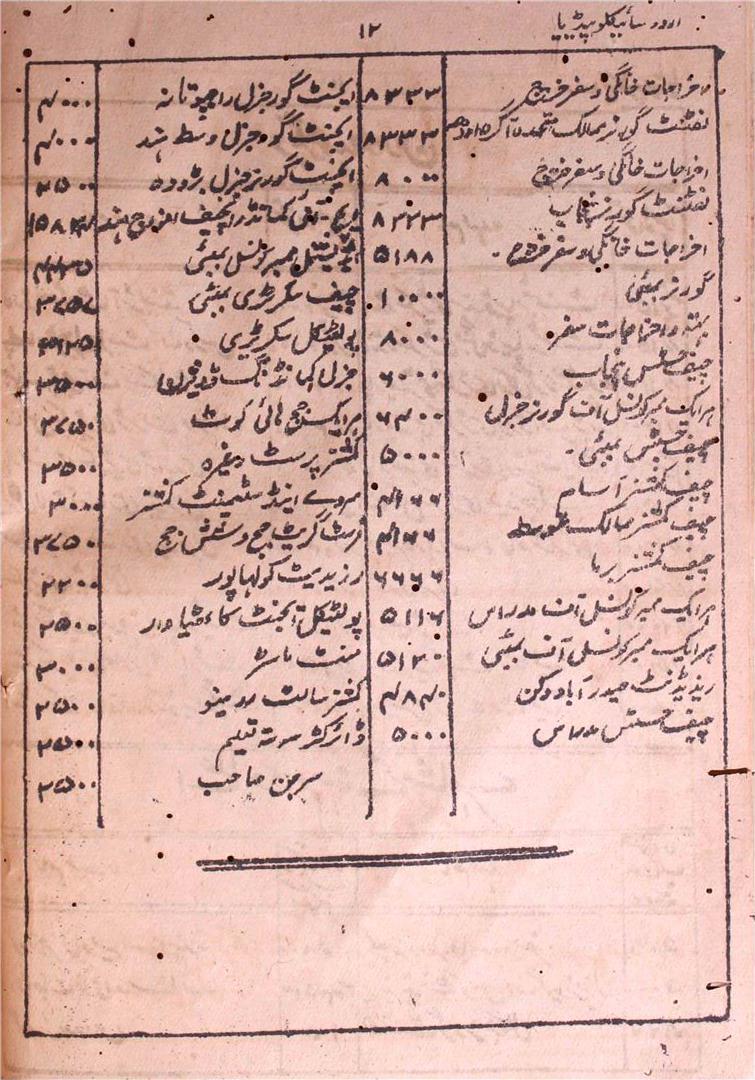 اردو سائیکلوپیڈیا
۱۲
اخراجات خانگی و سفر خرچ ۸۳۳۳
لفٹنٹ گورنر ممالک متحدہ آگرہ اودھ ۸۳۳۳
اخراجات خانگی و سفر خرچ ۸۰۰۰
لفٹنٹ گورنر پنجاب ۸۳۳۳
اخراجات خانگی و سفر خرچ ۔ ۵۱۸۸
گورنر بمبئی ۱۰۰۰۰
بھتہ و اخراجات سفر ۸۰۰۰
چیف جسٹس پنجاب ۶۰۰۰
ہر ایک ممبر کونسل آف گورنر جنرل ۶۴۰۰
چیف جسٹس بمبئی ۔ ۵۰۰۰
چیف کمشنر آسام ۴۱۶۶
چیف کمشنر ممالک متوسط ۴۱۶۶
چیف کمشنر برہما ۶۶۶۶
ہر ایک ممبر کونسل آف مدراس ۵۱۱۶
ہر ایک ممبر کونسل آف بمبئی ۵۱۲۰
ریزیڈنٹ حیدرآباد دکن
چیف جسٹس مدراس ۵۰۰۰
ایجنٹ گورنر جنرل راجپوتانہ ۴۰۰۰
ایجنٹ گورنر جنرل وسط ہند ۴۰۰۰
ایجنٹ گورنر جنرل بڑودہ ۳۵۰۰
کمانڈر انچیف افواج ہند
ایڈیشنل ممبر کونسل بمبئی
چیف سکرٹری بمبئی
پولیٹیکل سکرٹیری
جنرل کمانڈنگ ڈویژن ۳۵۰۰
ہر ایک جج ہائی کورٹ ۳۷۵۰
کمشنر پرسٹ وغیرہ ۳۵۰۰
سروے اینڈ سٹلمینٹ کمشنر ۳۰۰۰
فرسٹ گریٹ جج و سشن جج ۳۷۵۰
رزیڈینٹ کولہاپور ۲۲۰۰
پولٹیکل ایجنٹ کاٹھیاوار ۲۵۰۰
منٹ ماسٹر ۳۰۰۰
کمشنر سالٹ ریونیو ۲۵۰۰
ڈائرکٹر سررشتہ تعلیم ۲۵۰۰
سرجن صاحب ۲۵۰۰